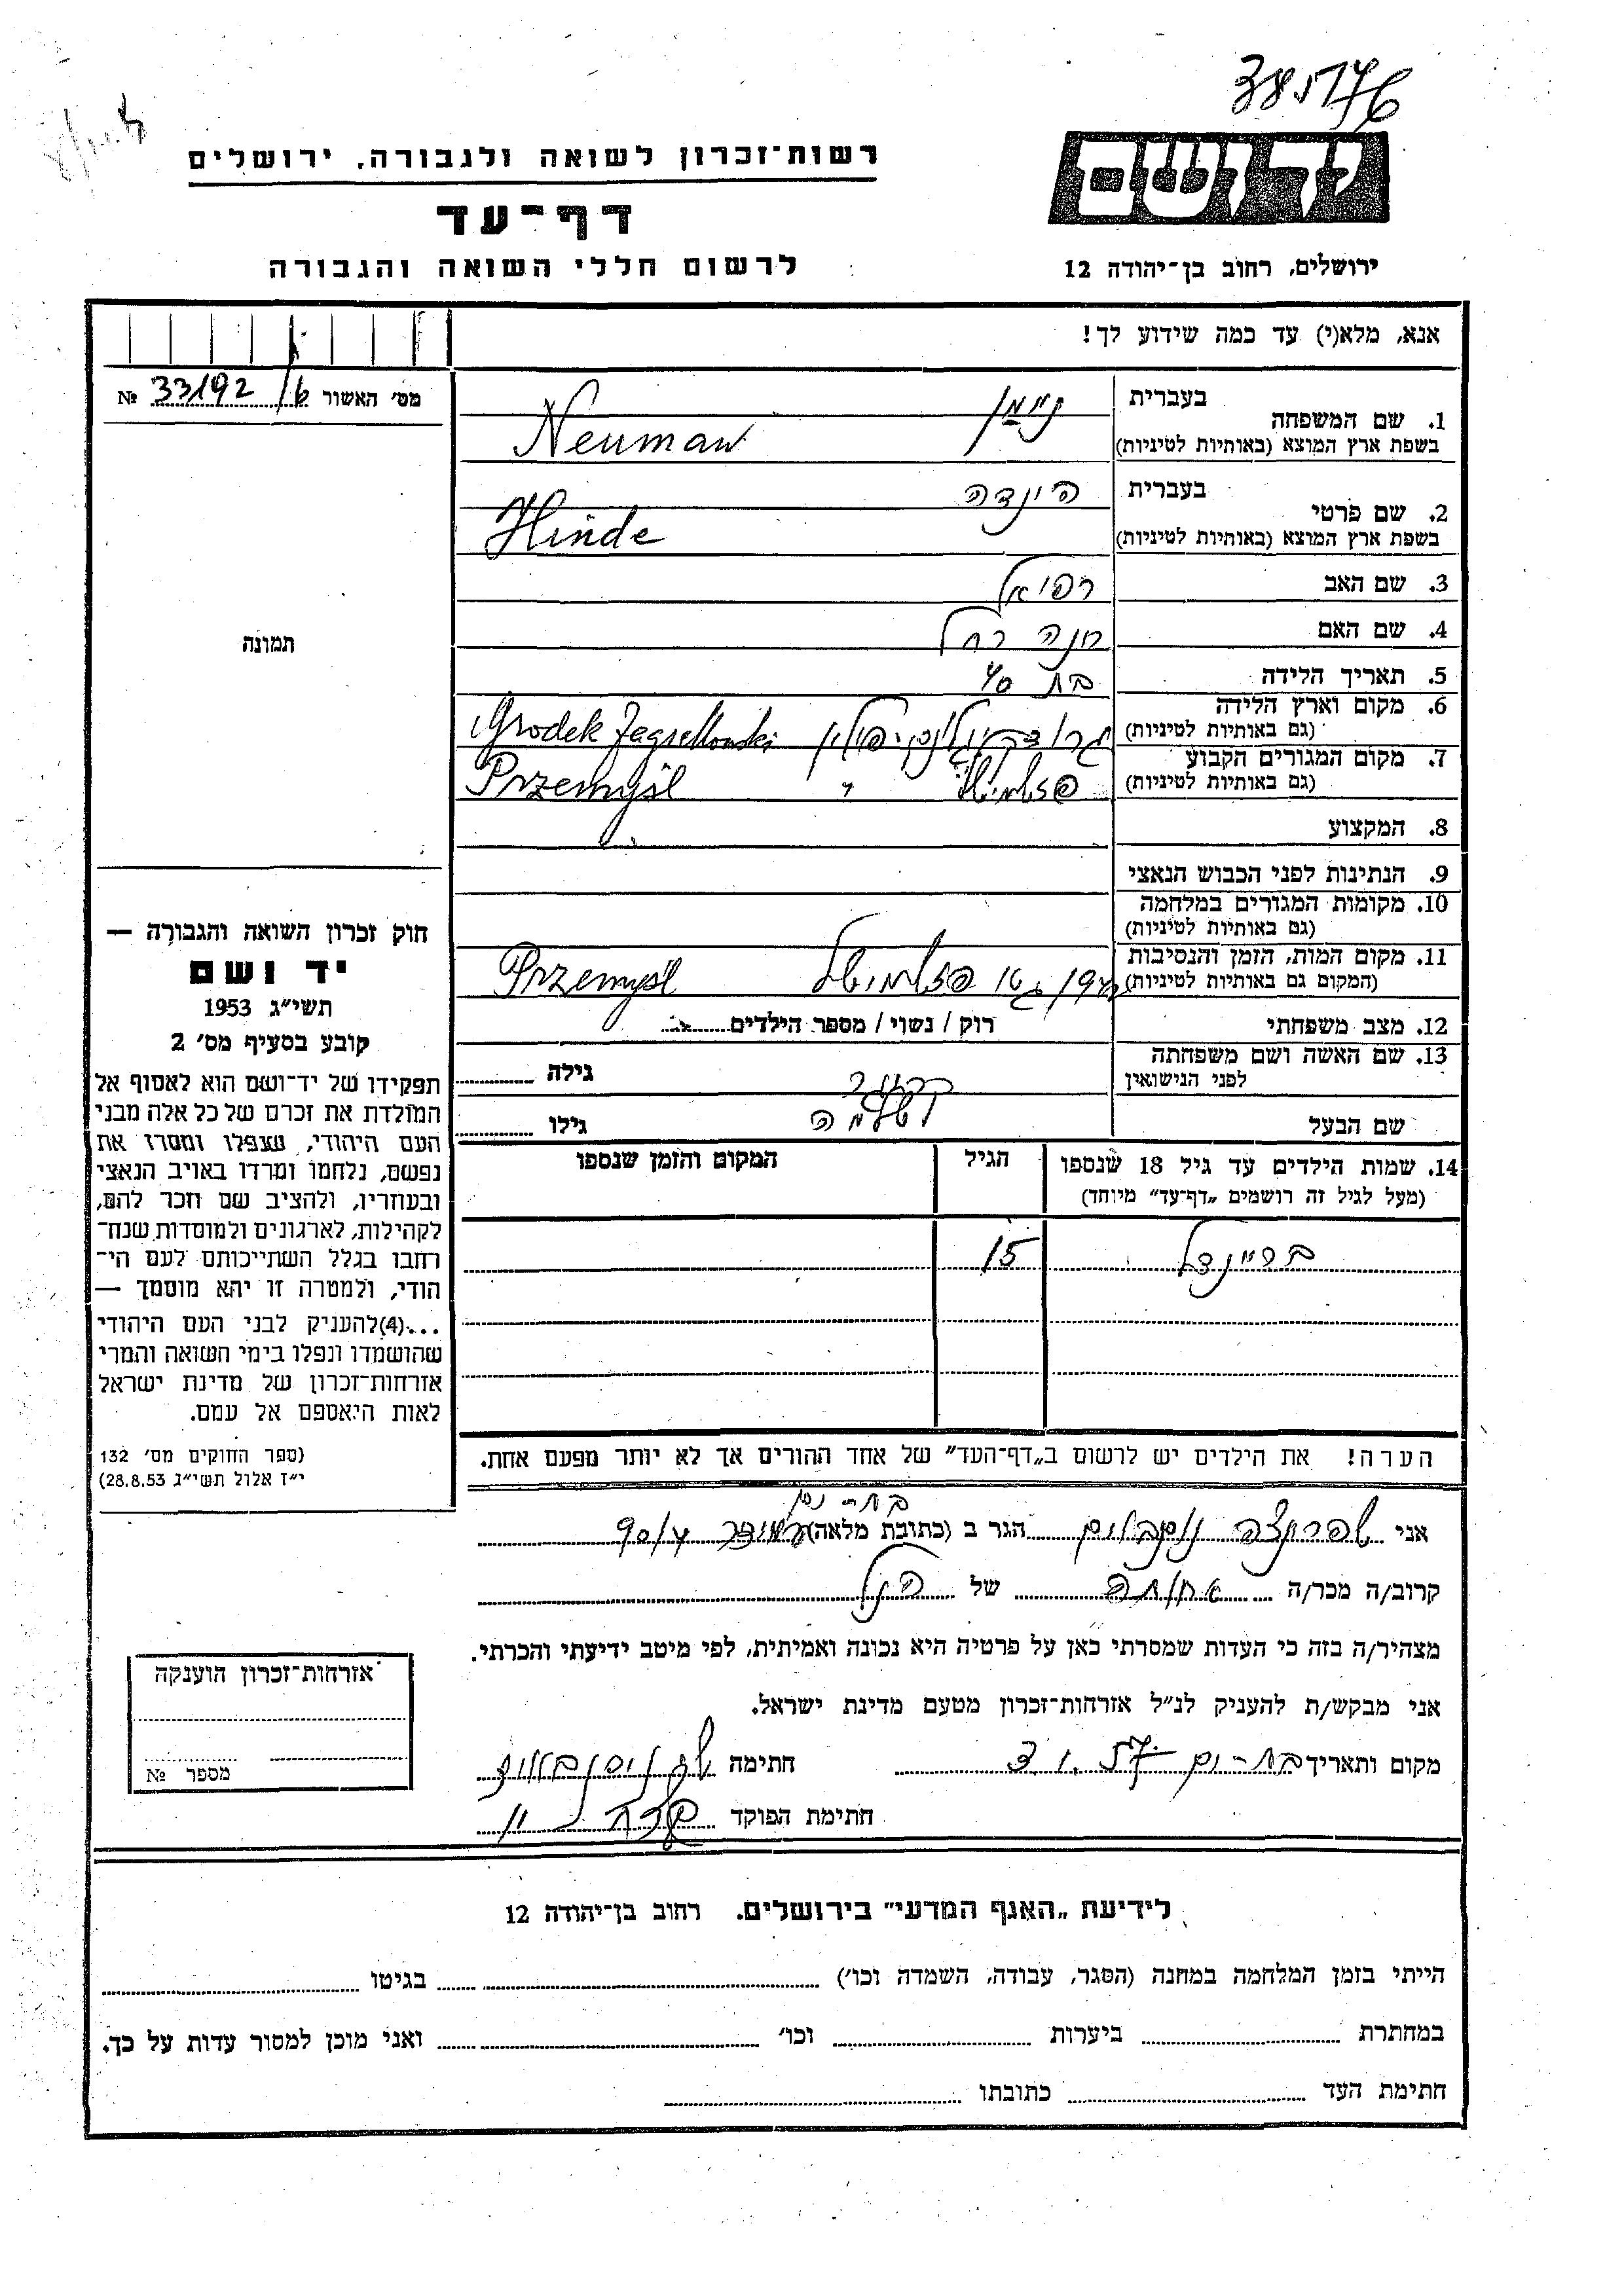 38576
רשות־זכרון לשואה ולגבורה, ירושלים
ידושם
דף־עד
לרשום חללי השואה והגבורה
ירושלים, רחוב בן־יהודה 12
אנא, מלא(י) עד כמה שידוע לך!
מס׳ האשור 33192/6 №
תמונה
1. שם המשפחה בעברית נוימן
בשפת ארץ המוצא (באותיות לטיניות) Neuman
2. שם פרטי בעברית הינדה
בשפת ארץ המוצא (באותיות לטיניות) Hinde
3. שם האב רפאל
4. שם האם חנה רחל
5. תאריך הלידה בת 40
6. מקום וארץ הלידה Grodek Jagiellonski
(גם באותיות לטיניות)
7. מקום המגורים הקבוע Przemyśl
(גם באותיות לטיניות)
8. המקצוע
9. הנתינות לפני הכבוש הנאצי
10. מקומות המגורים במלחמה
(גם באותיות לטיניות)
11. מקום המות, הזמן והנסיבות Przemyśl
(המקום גם באותיות לטיניות)
12. מצב משפחתי רוק / נשוי / מספר הילדים
13. שם האשה ושם משפחתה לפני הנישואין גילה
שם הבעל שלמה גילו
14. שמות הילדים עד גיל 18 שנספו הגיל המקום והזמן שנספו
(מעל לגיל זה רושמים „דף־עד״ מיוחד)
בריינדל 15
הערה! את הילדים יש לרשום ב„דף־העד״ של אחד ההורים אך לא יותר מפעם אחת.
חוק זכרון השואה והגבורה —
יד ושם
תשי״ג 1953
קובע בסעיף מס׳ 2
תפקידו של יד־ושם הוא לאסוף אל
המולדת את זכרם של כל אלה מבני
העם היהודי, שנפלו ומסרו את
נפשם, נלחמו ומרדו באויב הנאצי
ובעוזריו, ולהציב שם וזכר להם,
לקהילות, לארגונים ולמוסדות שנח־
רבו בגלל השתייכותם לעם הי־
הודי, ולמטרה זו יהא מוסמך —
...(4) להעניק לבני העם היהודי
שהושמדו ונפלו בימי השואה והמרי
אזרחות־זכרון של מדינת ישראל
לאות היאספם אל עמם.
(ספר החוקים מס׳ 132
י״ז אלול תשי״ג 28.8.53)
בת-ים
אני שפרינצה נוסבוים הגר ב (כתובת מלאה) 90/4
קרוב/ה מכר/ה אחותה של הנ״ל
מצהיר/ה בזה כי העדות שמסרתי כאן על פרטיה היא נכונה ואמיתית, לפי מיטב ידיעתי והכרתי.
אני מבקש/ת להעניק לנ״ל אזרחות־זכרון מטעם מדינת ישראל.
מקום ותאריך בת-ים 3.1.57 חתימה
חתימת הפוקד
אזרחות־זכרון הוענקה
מספר №
לידיעת „האגף המדעי״ בירושלים. רחוב בן־יהודה 12
הייתי בזמן המלחמה במחנה (הסגר, עבודה, השמדה וכו׳) בגיטו
במחתרת ביערות וכו׳ ואני מוכן למסור עדות על כך.
חתימת העד כתובתו